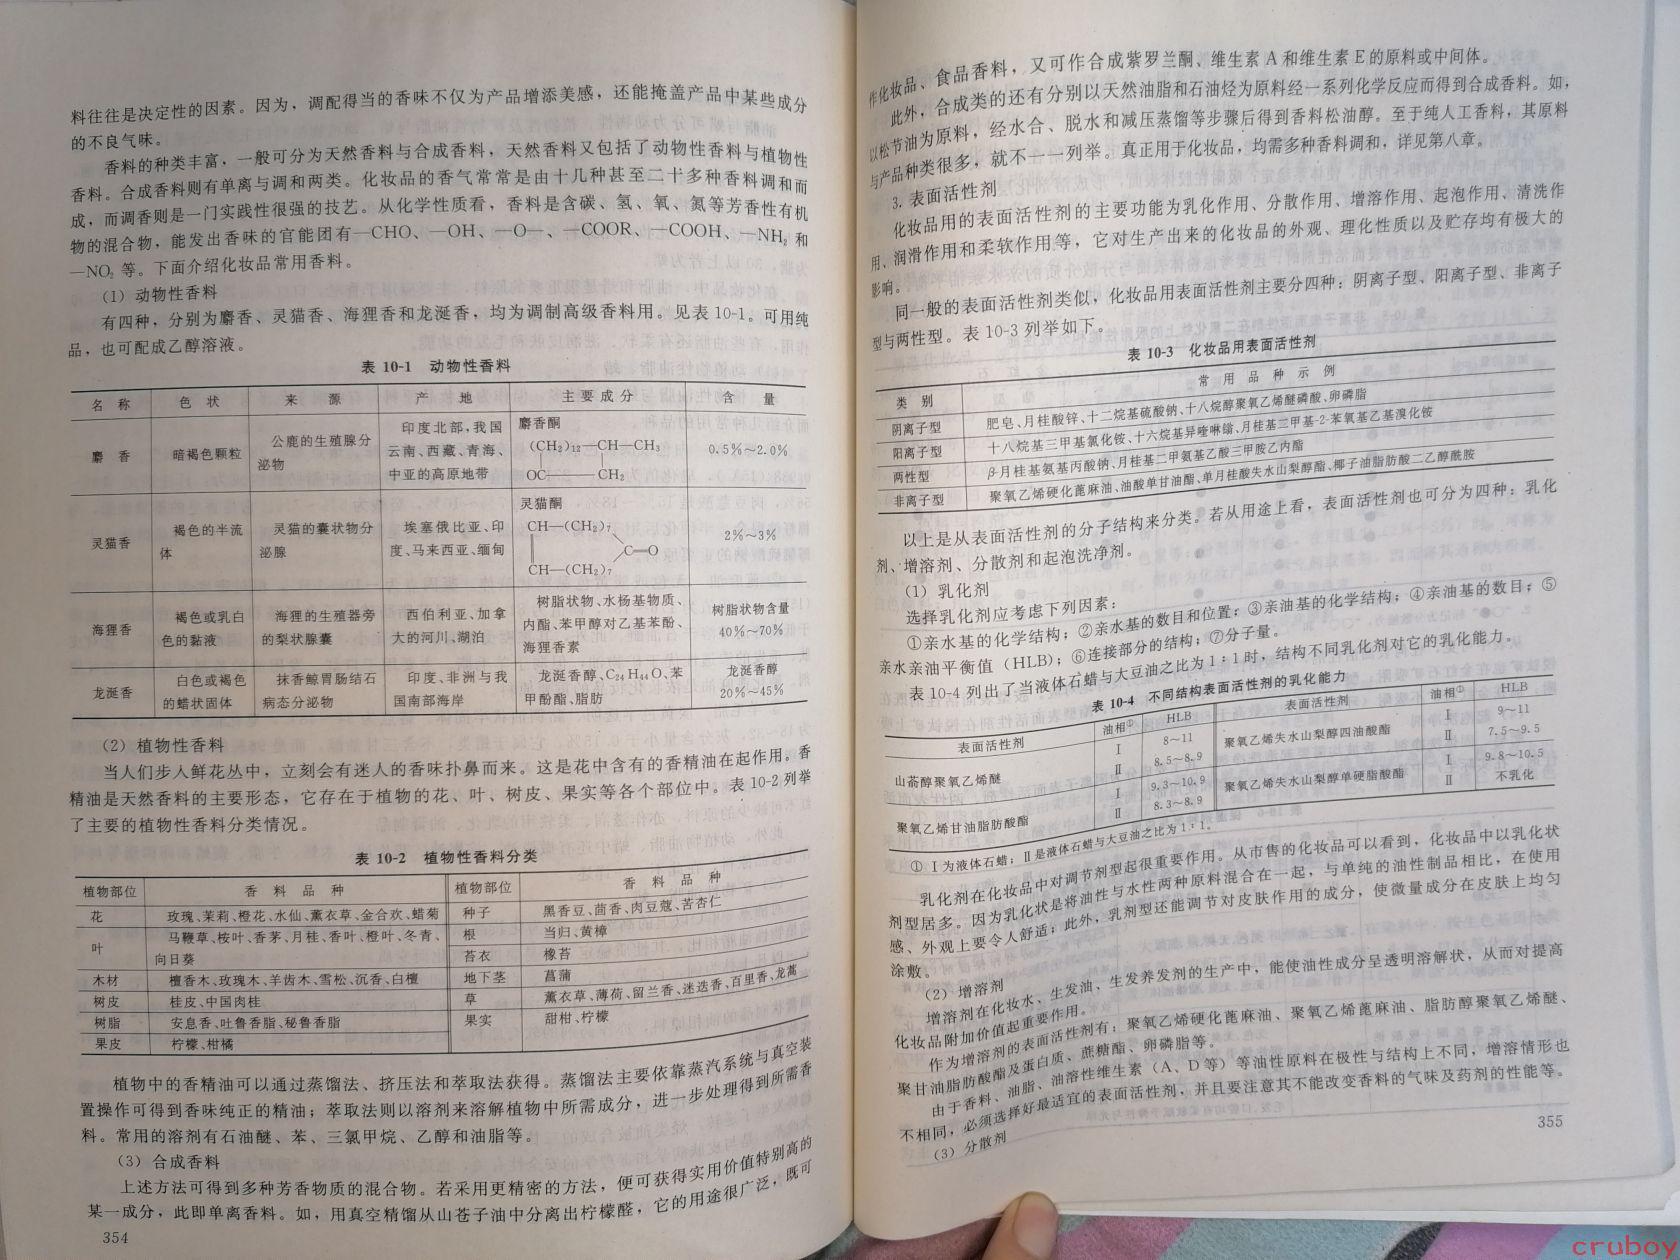 料往往是决定性的因素。因为，调配得当的香味不仅为产品增添美感，还能掩盖产品中某些成分
的不良气味。
香料的种类丰富，一般可分为天然香料与合成香料，天然香料又包括了动物性香料与植物性
香料。合成香料则有单离与调和两类。化妆品的香气常常是由十几种甚至二十多种香料调和而
成，而调香则是一门实践性很强的技艺。从化学性质看，香料是含碳、氢、氧、氮等芳香性有机
物的混合物，能发出香味的官能团有—CHO、—OH、—O—、—COOR、—COOH、—NH₂ 和
—NO₂ 等。下面介绍化妆品常用香料。
（1）动物性香料
有四种，分别为麝香、灵猫香、海狸香和龙涎香，均为调制高级香料用。见表 10-1。可用纯
品，也可配成乙醇溶液。
表 10-1 动物性香料
名 称 色 状 来 源 产 地 主 要 成 分 含 量
麝 香 暗褐色颗粒 公鹿的生殖腺分泌物 印度北部,我国云南、西藏、青海、中亚的高原地带 麝香酮 (CH₂)₁₂—CH—CH₃ OC——CH₂ 0.5%～2.0%
灵猫香 褐色的半流体 灵猫的囊状物分泌腺 埃塞俄比亚、印度、马来西亚、缅甸 灵猫酮 CH—(CH₂)₇ C=O CH—(CH₂)₇ 2%～3%
海狸香 褐色或乳白色的黏液 海狸的生殖器旁的梨状腺囊 西伯利亚、加拿大的河川、湖泊 树脂状物、水杨基物质、内酯、苯甲醇对乙基苯酚、海狸香素 树脂状物含量 40%～70%
龙涎香 白色或褐色的蜡状固体 抹香鲸胃肠结石病态分泌物 印度、非洲与我国南部海岸 龙涎香醇、C₂₄H₄₄O、苯甲酚酯、脂肪 龙涎香醇 20%～45%
（2）植物性香料
当人们步入鲜花丛中，立刻会有迷人的香味扑鼻而来。这是花中含有的香精油在起作用。香
精油是天然香料的主要形态，它存在于植物的花、叶、树皮、果实等各个部位中。表 10-2 列举
了主要的植物性香料分类情况。
表 10-2 植物性香料分类
植物部位 香 料 品 种 植物部位 香 料 品 种
花 玫瑰、茉莉、橙花、水仙、薰衣草、金合欢、蜡菊 种子 黑香豆、茴香、肉豆蔻、苦杏仁
叶 马鞭草、桉叶、香茅、月桂、香叶、橙叶、冬青、向日葵 根 当归、黄樟
苔衣 橡苔
木材 檀香木、玫瑰木、羊齿木、雪松、沉香、白檀 地下茎 菖蒲
树皮 桂皮、中国肉桂 草 薰衣草、薄荷、留兰香、迷迭香、百里香、龙蒿
树脂 安息香、吐鲁香脂、秘鲁香脂 果实 甜柑、柠檬
果皮 柠檬、柑橘
植物中的香精油可以通过蒸馏法、挤压法和萃取法获得。蒸馏法主要依靠蒸汽系统与真空装
置操作可得到香味纯正的精油；萃取法则以溶剂来溶解植物中所需成分，进一步处理得到所需香
料。常用的溶剂有石油醚、苯、三氯甲烷、乙醇和油脂等。
（3）合成香料
上述方法可得到多种芳香物质的混合物。若采用更精密的方法，便可获得实用价值特别高的
某一成分，此即单离香料。如，用真空精馏从山苍子油中分离出柠檬醛，它的用途很广泛，既可
354
作化妆品、食品香料，又可作合成紫罗兰酮、维生素 A 和维生素 E 的原料或中间体。
此外，合成类的还有分别以天然油脂和石油烃为原料经一系列化学反应而得到合成香料。如，
以松节油为原料，经水合、脱水和减压蒸馏等步骤后得到香料松油醇。至于纯人工香料，其原料
与产品种类很多，就不一一列举。真正用于化妆品，均需多种香料调和，详见第八章。
3. 表面活性剂
化妆品用的表面活性剂的主要功能为乳化作用、分散作用、增溶作用、起泡作用、清洗作
用、润滑作用和柔软作用等，它对生产出来的化妆品的外观、理化性质以及贮存均有极大的
影响。
同一般的表面活性剂类似，化妆品用表面活性剂主要分四种：阴离子型、阳离子型、非离子
型与两性型。表 10-3 列举如下。
表 10-3 化妆品用表面活性剂
类 别 常 用 品 种 示 例
阴离子型 肥皂、月桂酸锌、十二烷基硫酸钠、十八烷醇聚氧乙烯醚磷酸、卵磷脂
阳离子型 十八烷基三甲基氯化铵、十六烷基异喹啉鎓、月桂基二甲基-2-苯氧基乙基溴化铵
两性型 β-月桂基氨基丙酸钠、月桂基二甲氨基乙酸三甲胺乙内酯
非离子型 聚氧乙烯硬化蓖麻油、油酸单甘油酯、单月桂酸失水山梨醇酯、椰子油脂肪酸二乙醇酰胺
以上是从表面活性剂的分子结构来分类。若从用途上看，表面活性剂也可分为四种：乳化
剂、增溶剂、分散剂和起泡洗净剂。
（1）乳化剂
选择乳化剂应考虑下列因素：
①亲水基的化学结构；②亲水基的数目和位置；③亲油基的化学结构；④亲油基的数目；⑤
亲水亲油平衡值（HLB）；⑥连接部分的结构；⑦分子量。
表 10-4 列出了当液体石蜡与大豆油之比为 1∶1时，结构不同乳化剂对它的乳化能力。
表 10-4 不同结构表面活性剂的乳化能力
表面活性剂 油相① HLB 表面活性剂 油相① HLB
山萮醇聚氧乙烯醚 Ⅰ 8～11 聚氧乙烯失水山梨醇四油酸酯 Ⅰ 9～11
Ⅱ 8.5～8.9 Ⅱ 7.5～9.5
聚氧乙烯甘油脂肪酸酯 Ⅰ 9.3～10.9 聚氧乙烯失水山梨醇单硬脂酸酯 Ⅰ 9.8～10.5
Ⅱ 8.3～8.9 Ⅱ 不乳化
① Ⅰ为液体石蜡；Ⅱ是液体石蜡与大豆油之比为 1∶1。
乳化剂在化妆品中对调节剂型起很重要作用。从市售的化妆品可以看到，化妆品中以乳化状
剂型居多。因为乳化状是将油性与水性两种原料混合在一起，与单纯的油性制品相比，在使用
感、外观上要令人舒适；此外，乳剂型还能调节对皮肤作用的成分，使微量成分在皮肤上均匀
涂敷。
（2）增溶剂
增溶剂在化妆水、生发油、生发养发剂的生产中，能使油性成分呈透明溶解状，从而对提高
化妆品附加价值起重要作用。
作为增溶剂的表面活性剂有：聚氧乙烯硬化蓖麻油、聚氧乙烯蓖麻油、脂肪醇聚氧乙烯醚、
聚甘油脂肪酸酯及蛋白质、蔗糖酯、卵磷脂等。
由于香料、油脂、油溶性维生素（A、D 等）等油性原料在极性与结构上不同，增溶情形也
不相同，必须选择好最适宜的表面活性剂，并且要注意其不能改变香料的气味及药剂的性能等。
（3）分散剂
355
cruboy